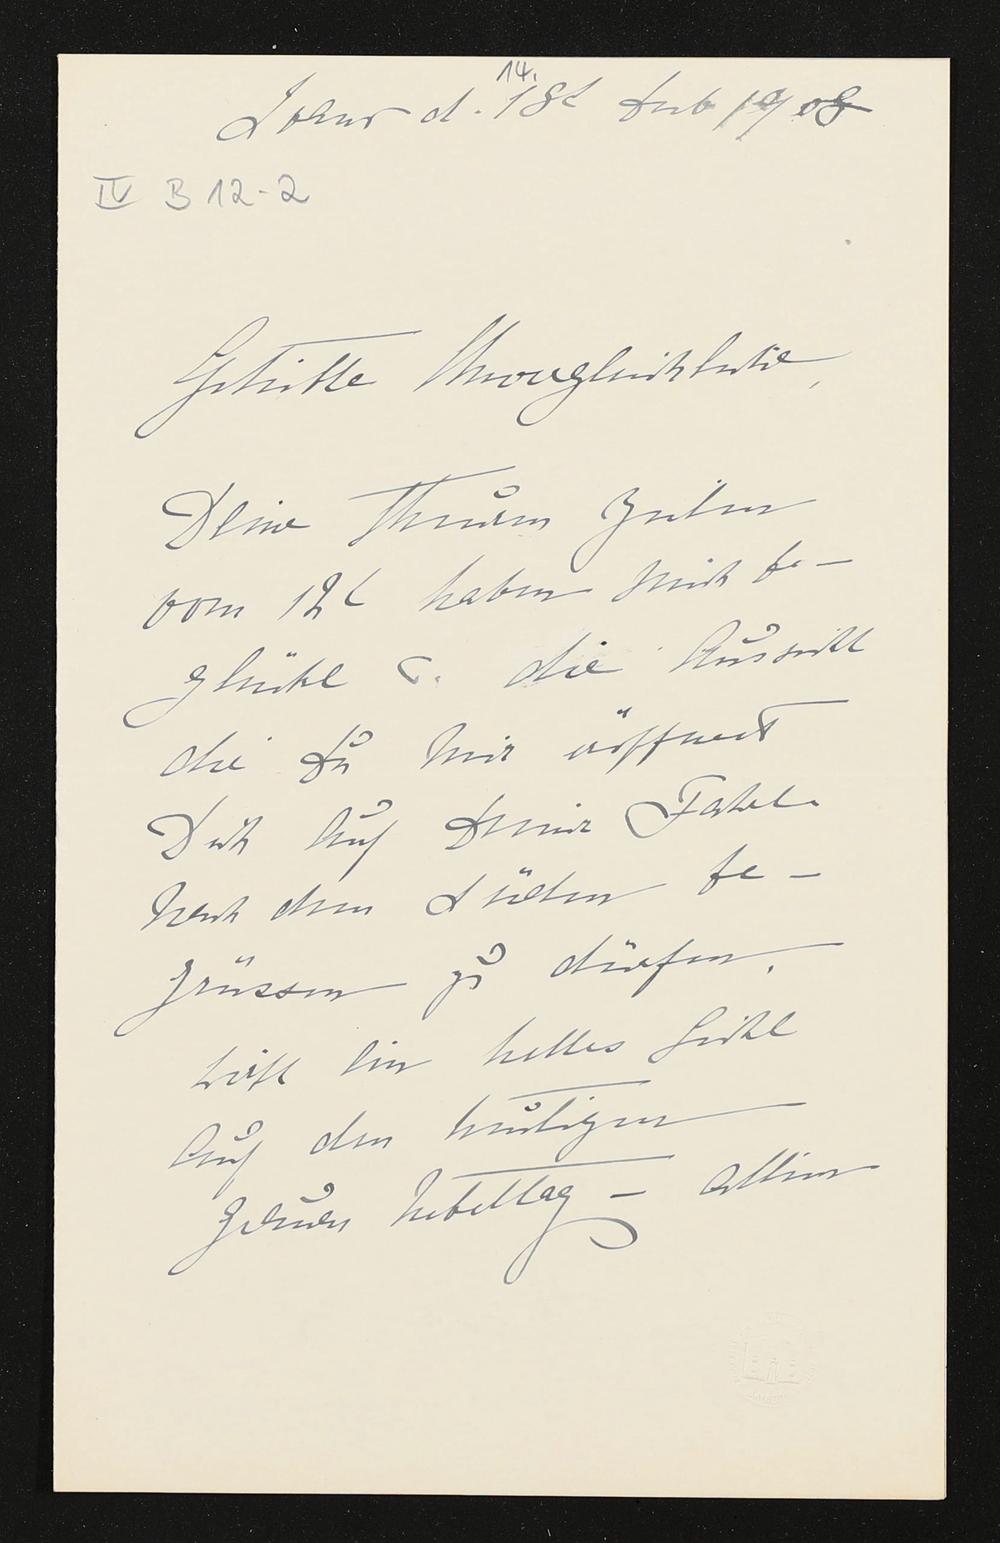 d. 18t Feb 1908
14.
IV B 12-2
Geliebte Unvergleichliche,
Deine theuren Zeilen
vom 12t haben mich be-
glückt u. die Aussicht
die Du mir eröffnest
Dich auf Deiner Fahrt
nach dem Süden be-
grüssen zu dürfen,
wirft ein helles Licht
auf den heutigen
grauen Nebeltag - allein